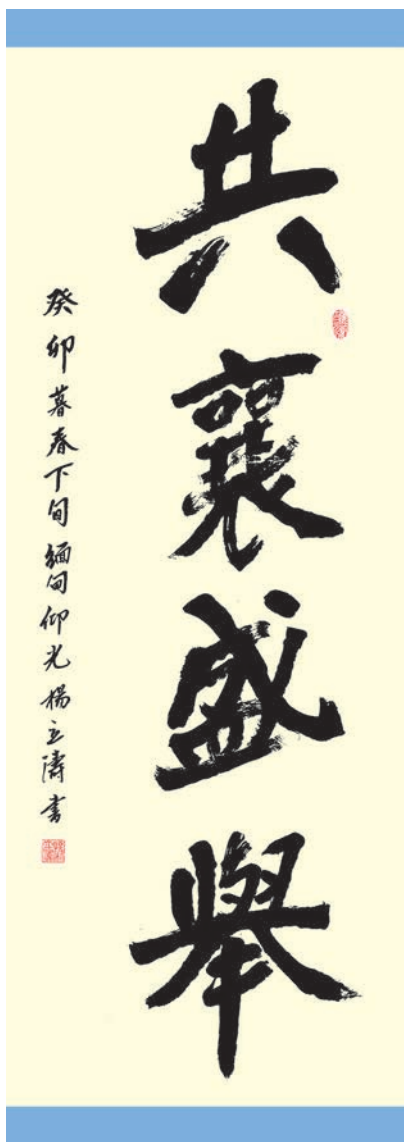 共襄盛舉
癸卯暮春下旬緬甸仰光楊立濤書